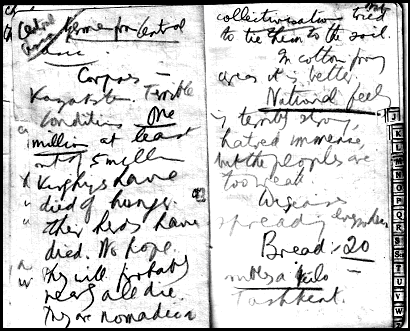 Central
Asia
German from Central
Asia.
Corpses —
Kazakstan. Terrible
conditions. One
million at least
out of 5 million
Kirghiz have
died of hunger.
Their herds have
died. No hope.
They will probably
nearly all die.
They are nomadic &
collectivisation tried
to tie them to the soil.
In cotton growing
areas it is better.
National feeling
is terribly strong,
hatred immense,
but the peoples are
too weak.
Diseases
spreading everywhere
Bread: 20
roubles a kilo
Tashkent.
J
K
L
M
N
O
P
Q
R
S
T
U
V
W